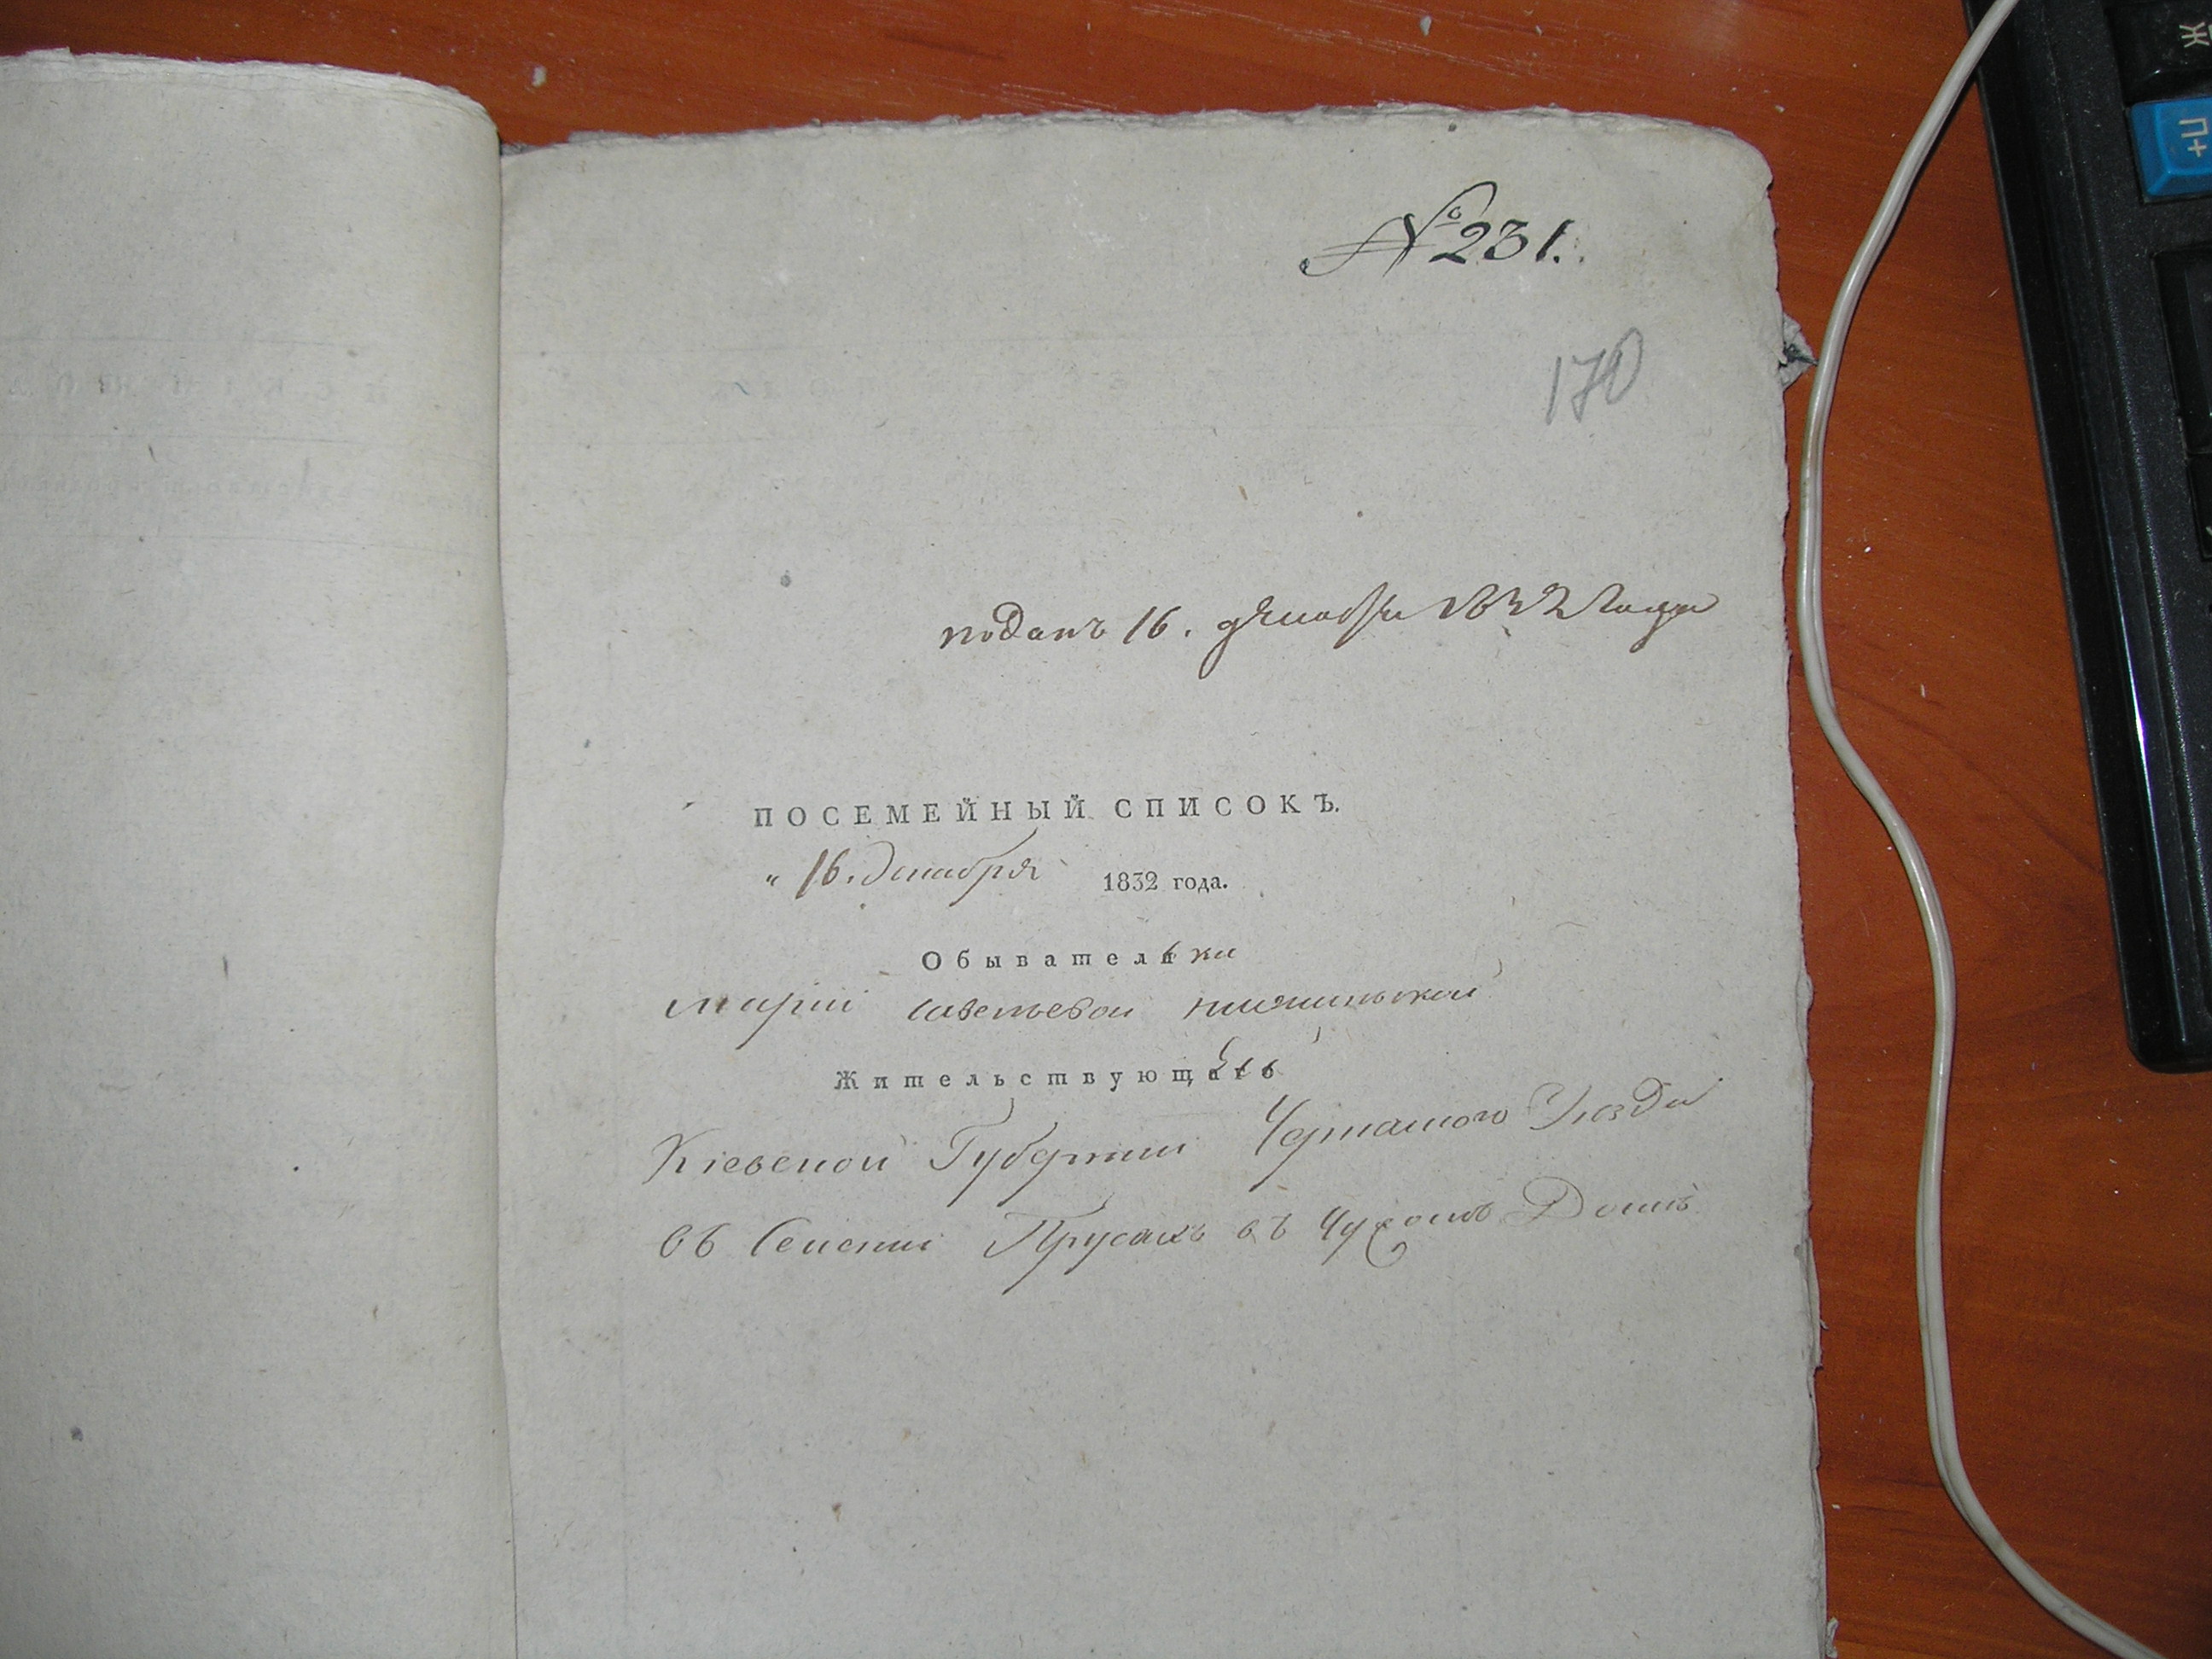 № 231.
170
поданъ 16. декабря 1832 года
ПОСЕМЕЙНЫЙ СПИСОКЪ.
„ 16. декабря 1832 года.
Обывательки
Маріи
Жительствующ
Кіевской Губерніи Уезда
въ Селеніи Прусахъ въ Чужомъ Доми
Ж
П+